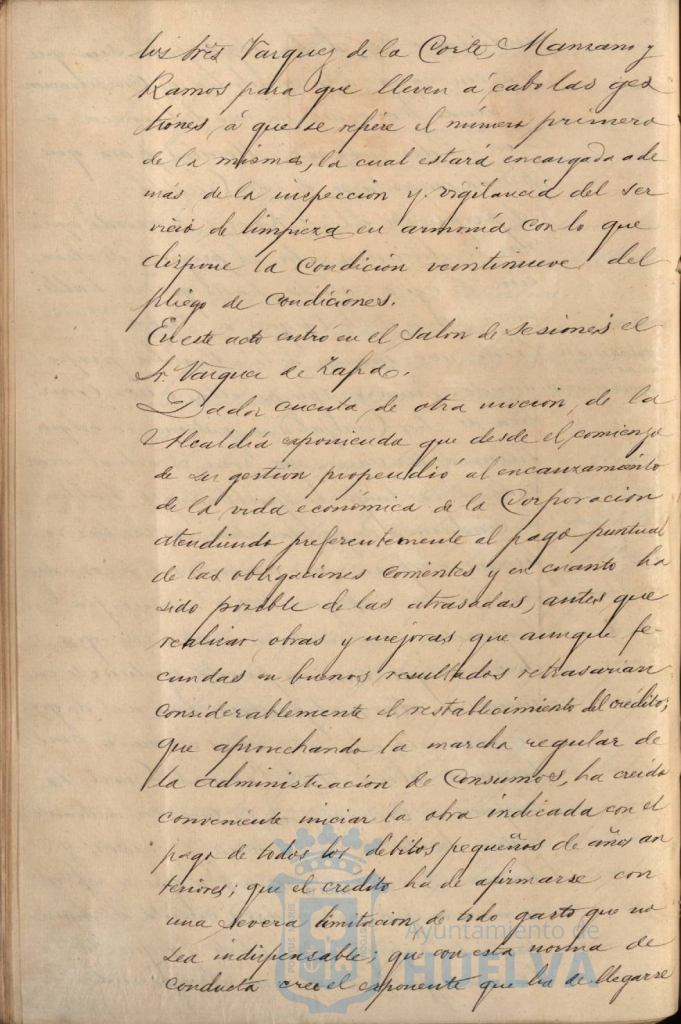 los Sres Vazquez de la Corte, Manzano y
Ramos para que lleven á cabo las ges
tiones á que se refiere el número primero
de la misma, la cual estará encargada ade
más de la inspeccion y vigilancia del ser
vicio de limpieza en armonía con lo que
dispone la Condicion veintinueve del
pliego de condiciones.
En este acto entró en el Salon de sesiones el
Sr. Vazquez de Zafra.
Dada cuenta de otra mocion de la
Alcaldía exponiendo que desde el comienzo
de su gestion propendió al encauzamiento
de la vida económica de la Corporacion
atendiendo preferentemente al pago puntual
de las obligaciones corrientes y en cuanto ha
sido posible de las atrasadas, antes que
realizar obras y mejoras que aunque fe-
cundas en buenos resultados retrasarian
considerablemente el restablecimiento del crédito;
que aprovechando la marcha regular de
la administracion de Consumos, ha creido
conveniente iniciar la obra indicada con el
pago de todos los débitos pequeños de años an
teriores; que el credito ha de afirmarse con
una severa limitacion de todo gasto que no
sea indispensable; que con esta norma de
conducta cree el exponente que ha de llegarse
Ayuntamiento de
HUELVA